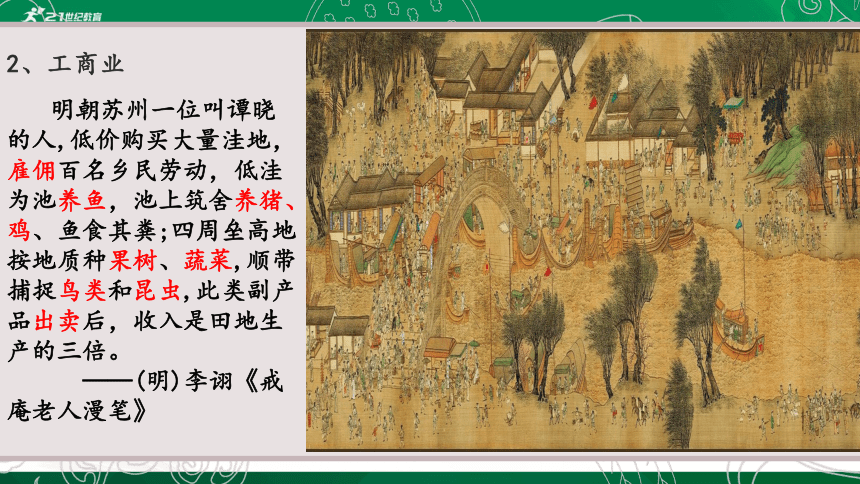 21世纪教育
2、工商业
明朝苏州一位叫谭晓
的人,低价购买大量洼地,
雇佣百名乡民劳动, 低洼
为池养鱼, 池上筑舍养猪、
鸡、鱼食其粪;四周垒高地
按地质种果树、蔬菜,顺带
捕捉鸟类和昆虫,此类副产
品出卖后, 收入是田地生
产的三倍。
——(明)李诩《戒
庵老人漫笔》